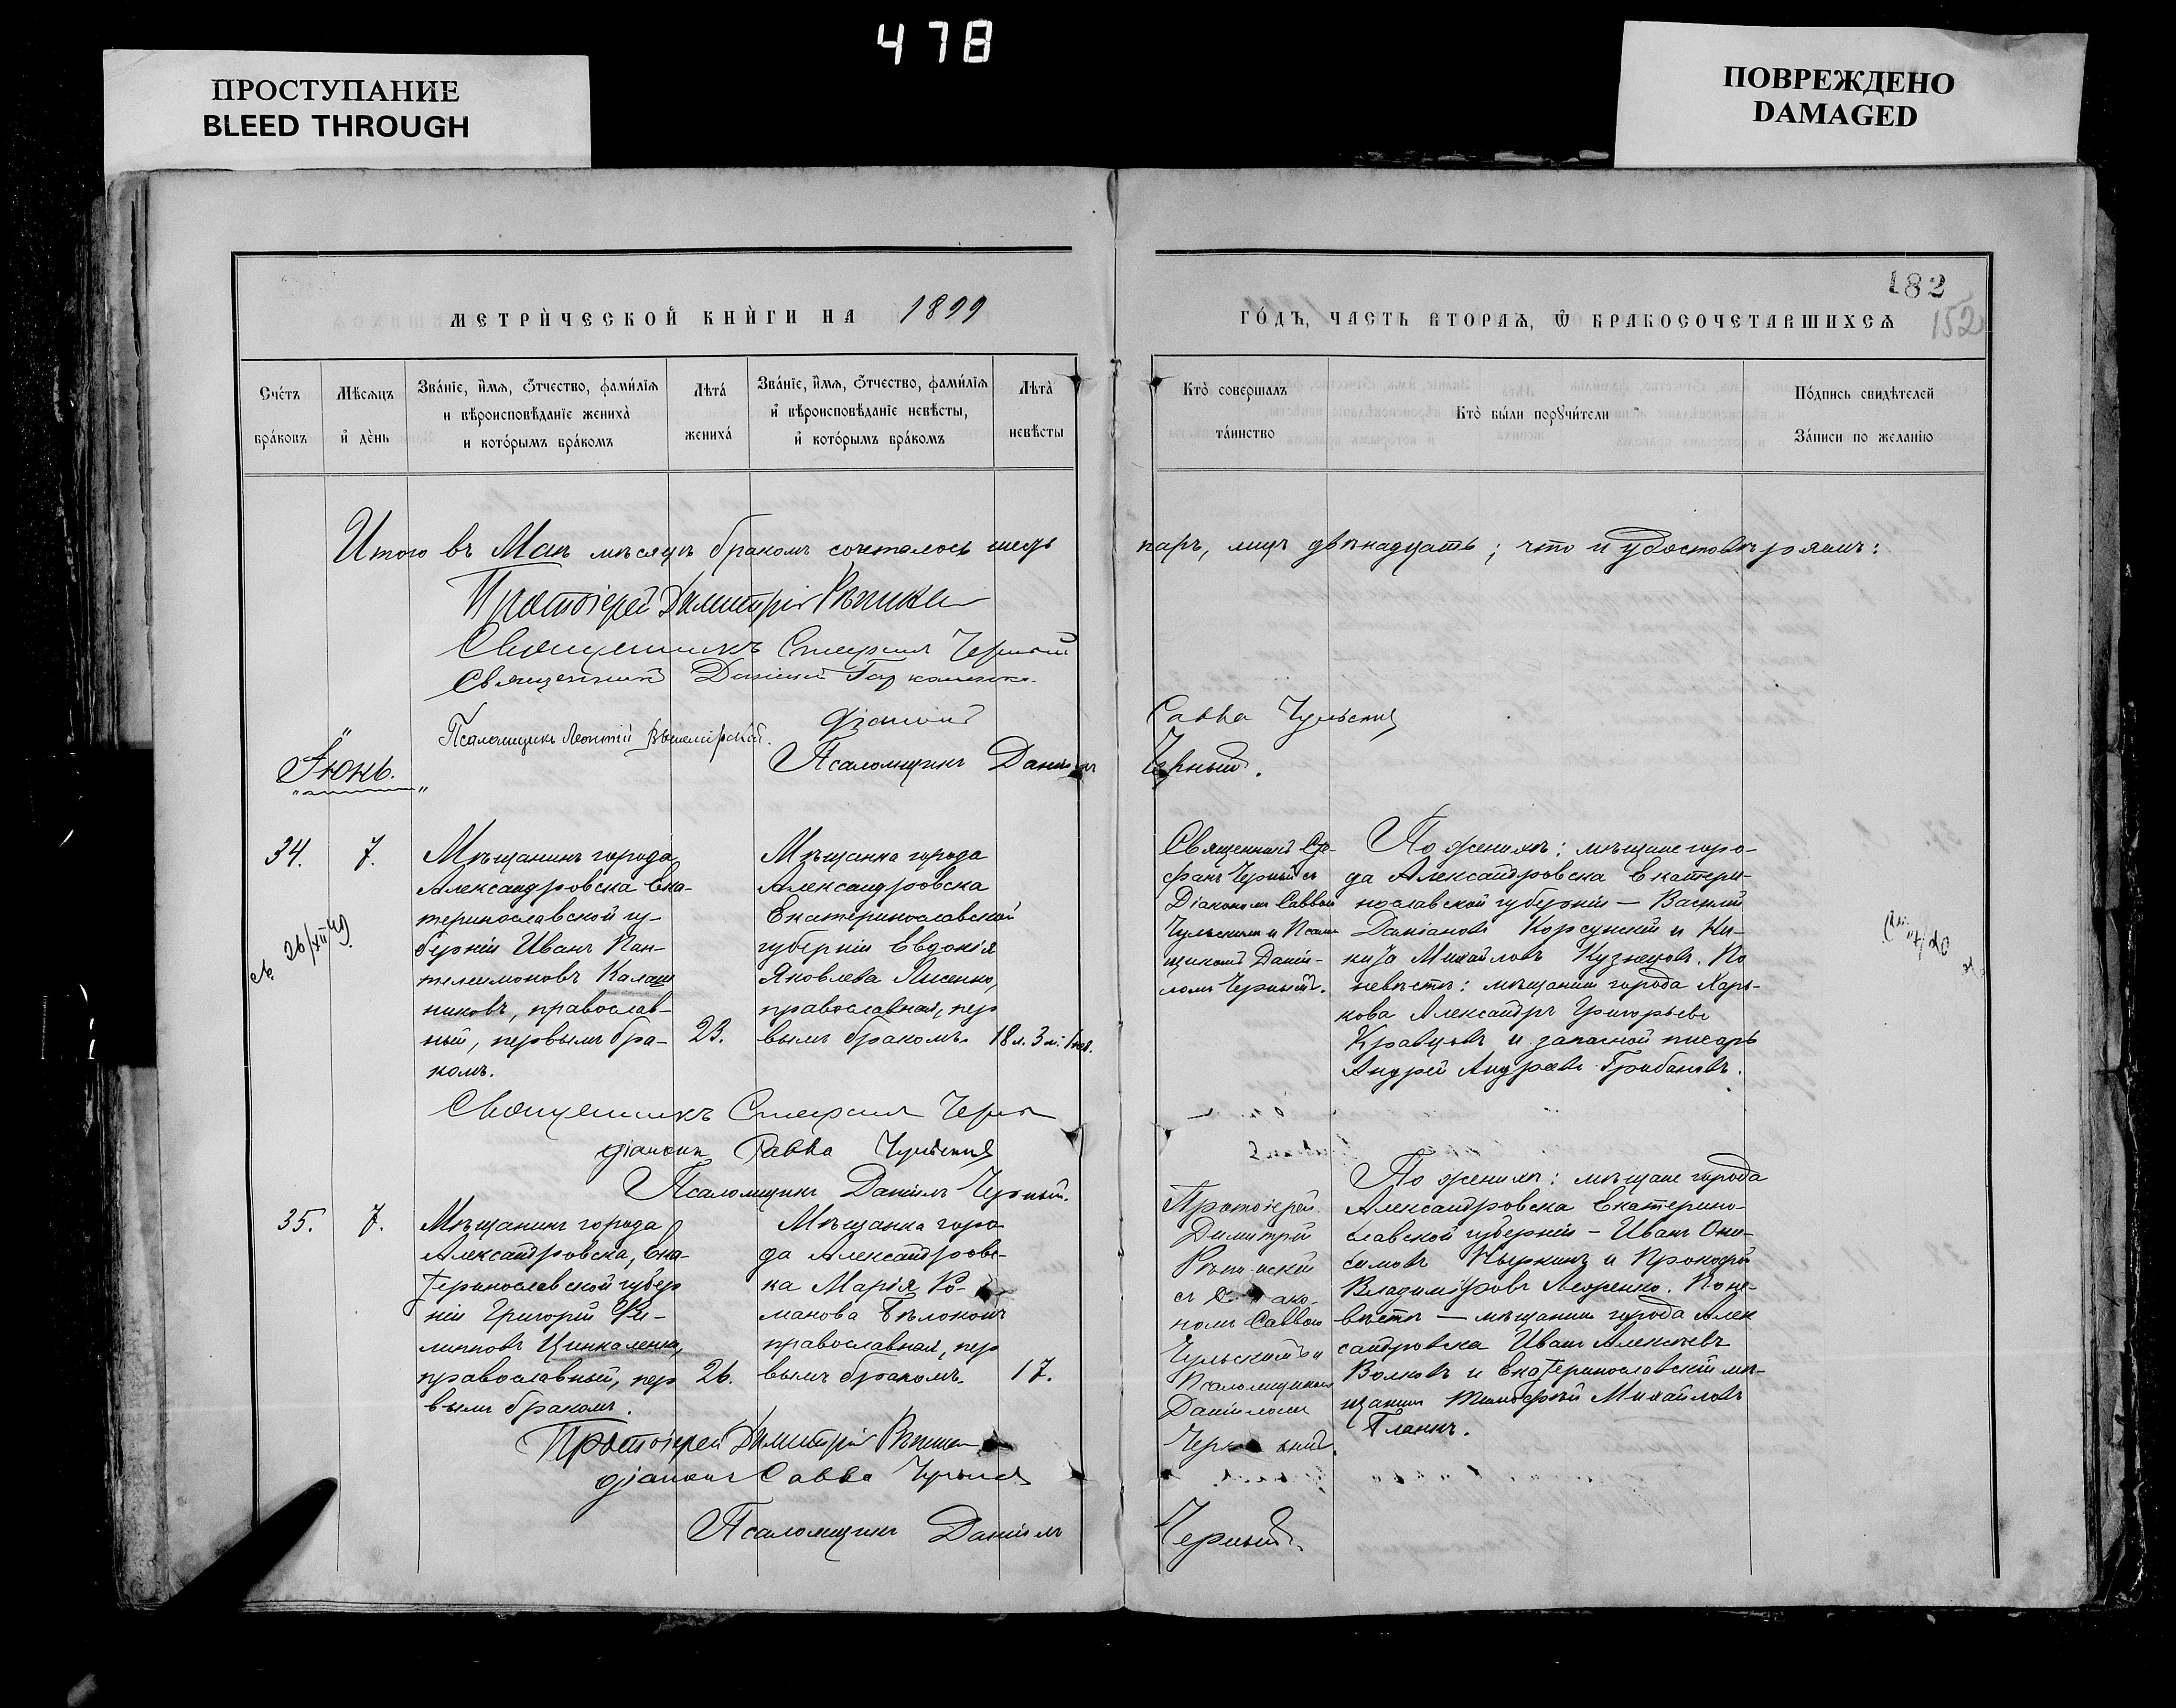 478
ПРОСТУПАНИЕ
BLEED THROUGH
ПОВРЕЖДЕНО
DAMAGED
182
152
МЕТРИ́ЧЕСКОЙ КНИ́ГИ НА 1899
ГО́ДЪ, ЧАСТЬ ВТОРАѦ, Ѡ БРАКОСОЧЕТАВШИХСѦ
Сче́тъ бра́ковъ
Мѣсѧцъ и҆ де́нь
Зва́нїе, и҆́мѧ, ѻ҆́тчество, фами́лїѧ
и вѣроисповѣ́данїе жениха̀
и кото́рымъ бра́комъ
Лѣта́ жениха́
Зва́нїе, и҆́мѧ, ѻ҆́тчество, фами́лїѧ
и҆ вѣроисповѣ́данїе невѣ́сты,
и҆ кото́рымъ бра́комъ
Лѣта̀ невѣ́сты
Кто̀ соверша́лъ та́инство
Кто̀ бы́ли порꙋчи́тели
По́дпись свидѣ́телей
За́писи по желанїю
Итого въ Маѣ мѣсяцѣ бракомъ сочеталось шесть
паръ, лицъ двѣнадцать; что и удостовѣряемъ:
Протоіерей Димитрій
Священникъ Стефанъ Черный
Священникъ Даніилъ
Псаломщикъ Леонтій
Діаконъ Савва Чульскій
Псаломщикъ Даніилъ Черный.
Іюнь.
34. 7.
Мѣщанинъ города
Александровска Ека-
теринославской гу-
берніи Иванъ Пан-
телеимоновъ Калаш
никовъ, православ-
ный, первымъ бра-
комъ.
23.
Мѣщанка города
Александровска
Екатеринославской
губерніи Евдокія
Яковлева Лисенко,
православная, пер
вымъ бракомъ.
18 л. 3 м. 1 нед.
26/XII 49
Священникъ Сте-
фанъ Черный съ
Діакономъ Саввою
Чульскимъ и Псалом
щикомъ Даніи-
ломъ Чернымъ.
По женихѣ: мѣщане горо-
да Александровска Екатери-
нославской губерніи — Василій
Даміановъ Корсунскій и Ки-
вѣстѣ: мѣщанинъ города Харь-
кова Александръ Григорьевъ
Кравцовъ и запасной писарь
Андрей Андреевъ Грибановъ.
Священникъ Стефанъ Черный
Діаконъ Савва Чульскій
Псаломщикъ Даніилъ Черный.
35. 7.
Мѣщанинъ города
Александровска, Ека-
теринославской губер
ніи Григорій Фи-
липповъ Цинкаленко,
православный, пер
вымъ бракомъ.
26.
Мѣщанка горо-
да Александровс-
ка Марія Ро-
манова Бѣлоконь
православная, пер
вымъ бракомъ.
17.
Протоіерей
Димитрій
номъ Саввою
Чульскимъ и
Псаломщикомъ
Даніиломъ
По женихѣ: мѣщане города
Александровска Екатерино-
славской губерніи — Иванъ Они-
симовъ и Прокофій
Владиміровъ По не-
вѣстѣ — мѣщанинъ города Алек
сандровска Иванъ Алексѣевъ
Волковъ и Екатеринославскій мѣ-
щанинъ Тимофей Михайловъ
Протоіерей Димитрій
Діаконъ Савва Чульскій
Псаломщикъ Даніилъ Черный.